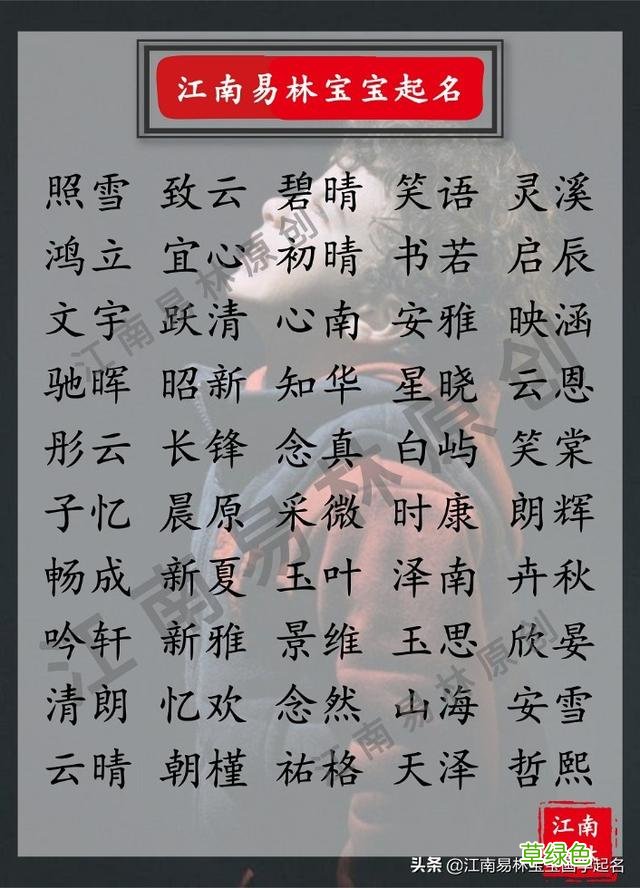 江南易林宝宝起名
照雪 致云 碧晴 笑语 灵溪
鸿立 宜心 初晴 书若 启辰
文宇 跃清 心南 安雅 映涵
驰晖 昭新 知华 星晓 云恩
彤云 长锋 念真 白屿 笑棠
子忆 晨原 采微 时康 朗辉
畅成 新夏 玉叶 泽南 卉秋
吟轩 新雅 景维 玉思 欣晏
清朗 忆欢 念然 山海 安雪
云晴 朝槿 祐格 天泽 哲熙
江南易林原创
江南易林原创
江南易林原创
江南
草绿色
头条 @江南易林宝宝国学起名